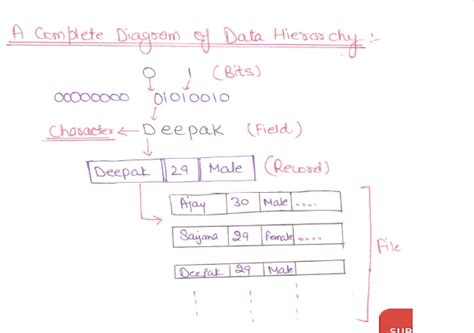 A Complete Diagram of Data Hierarchy :-
0 1 (Bits)
00000000 01010010
Character ← Deepak (Field)
Deepak 29 Male (Record)
Ajay 30 Male ....
Sanjana 29 Female ....
Deepak 29 Male
File
SUB